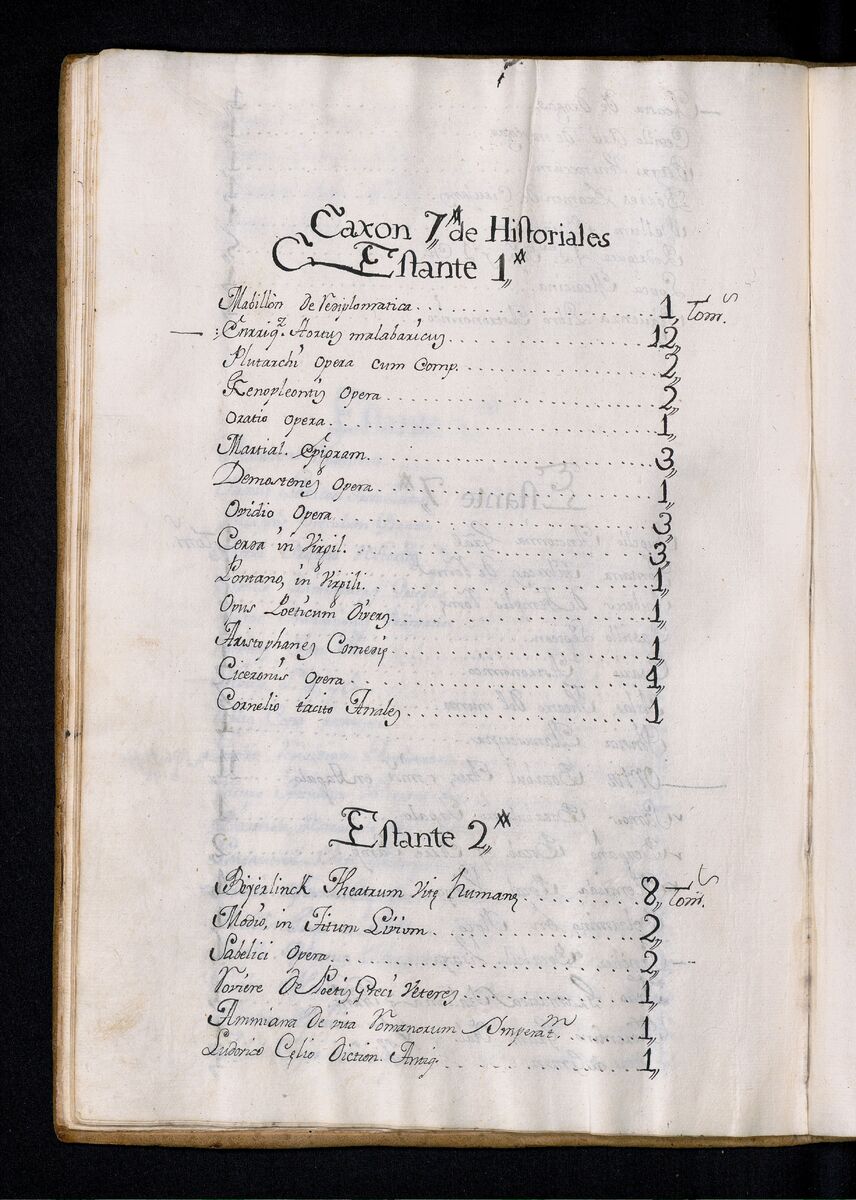 Caxon 7,,ª de Historiales
Estante 1,,ª
Mabillòn De Rediplomatica. . . . . . . . . . . . . . . . . . 1,, Tom.s
Enrriq.z Hortus malabaricus . . . . . . . . . . . . . . . 12,,
Plutarchi Opera cum Comp. . . . . . . . . . . . . . . . 2,,
Xenopleontis Opera . . . . . . . . . . . . . . . . . . . . . 2,,
Oratio Opera . . . . . . . . . . . . . . . . . . . . . . . . . 1,,
Martial. Epigram. . . . . . . . . . . . . . . . . . . . . . . 3,,
Demostenes Opera . . . . . . . . . . . . . . . . . . . . . 1,,
Ovidio Opera . . . . . . . . . . . . . . . . . . . . . . . . . 3,,
Cerda in Virgil. . . . . . . . . . . . . . . . . . . . . . . . . 3,,
Pontano, in Virgili. . . . . . . . . . . . . . . . . . . . . . . 1,,
Opus Poeticum Divers. . . . . . . . . . . . . . . . . . . . 1,,
Aristophanes Comedię . . . . . . . . . . . . . . . . . . . 1,,
Ciceronis Opera . . . . . . . . . . . . . . . . . . . . . . . 4,,
Cornelio tacito Anales . . . . . . . . . . . . . . . . . . . 1,,
Estante 2,,ª
Beyerlinck Theatrum Vitę humanę . . . . . . . . . . 8,, Tom.s
Modio, in Titum Livium . . . . . . . . . . . . . . . . . . 2,,
Sabelici Opera . . . . . . . . . . . . . . . . . . . . . . . . 2,,
De Poetis Greci Veteres . . . . . . . . . . . . . . . . . 1,,
Ammiana De vita Romanorum Imperat.m . . . . . . 1,,
Ludovico Cęlio Diction. Antiq. . . . . . . . . . . . . . . 1,,